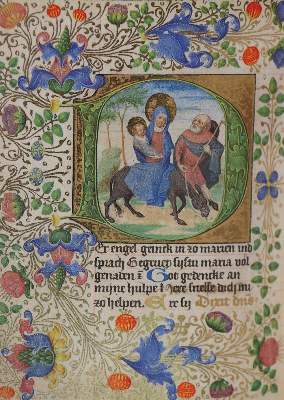 Der engel geinck in zo marien ind
sprach Gegruet sijstu maria vol
genaden Got gedencke an
mijne hulpe here snelle dich mir
zo helpen. Ere sij Dixit dns